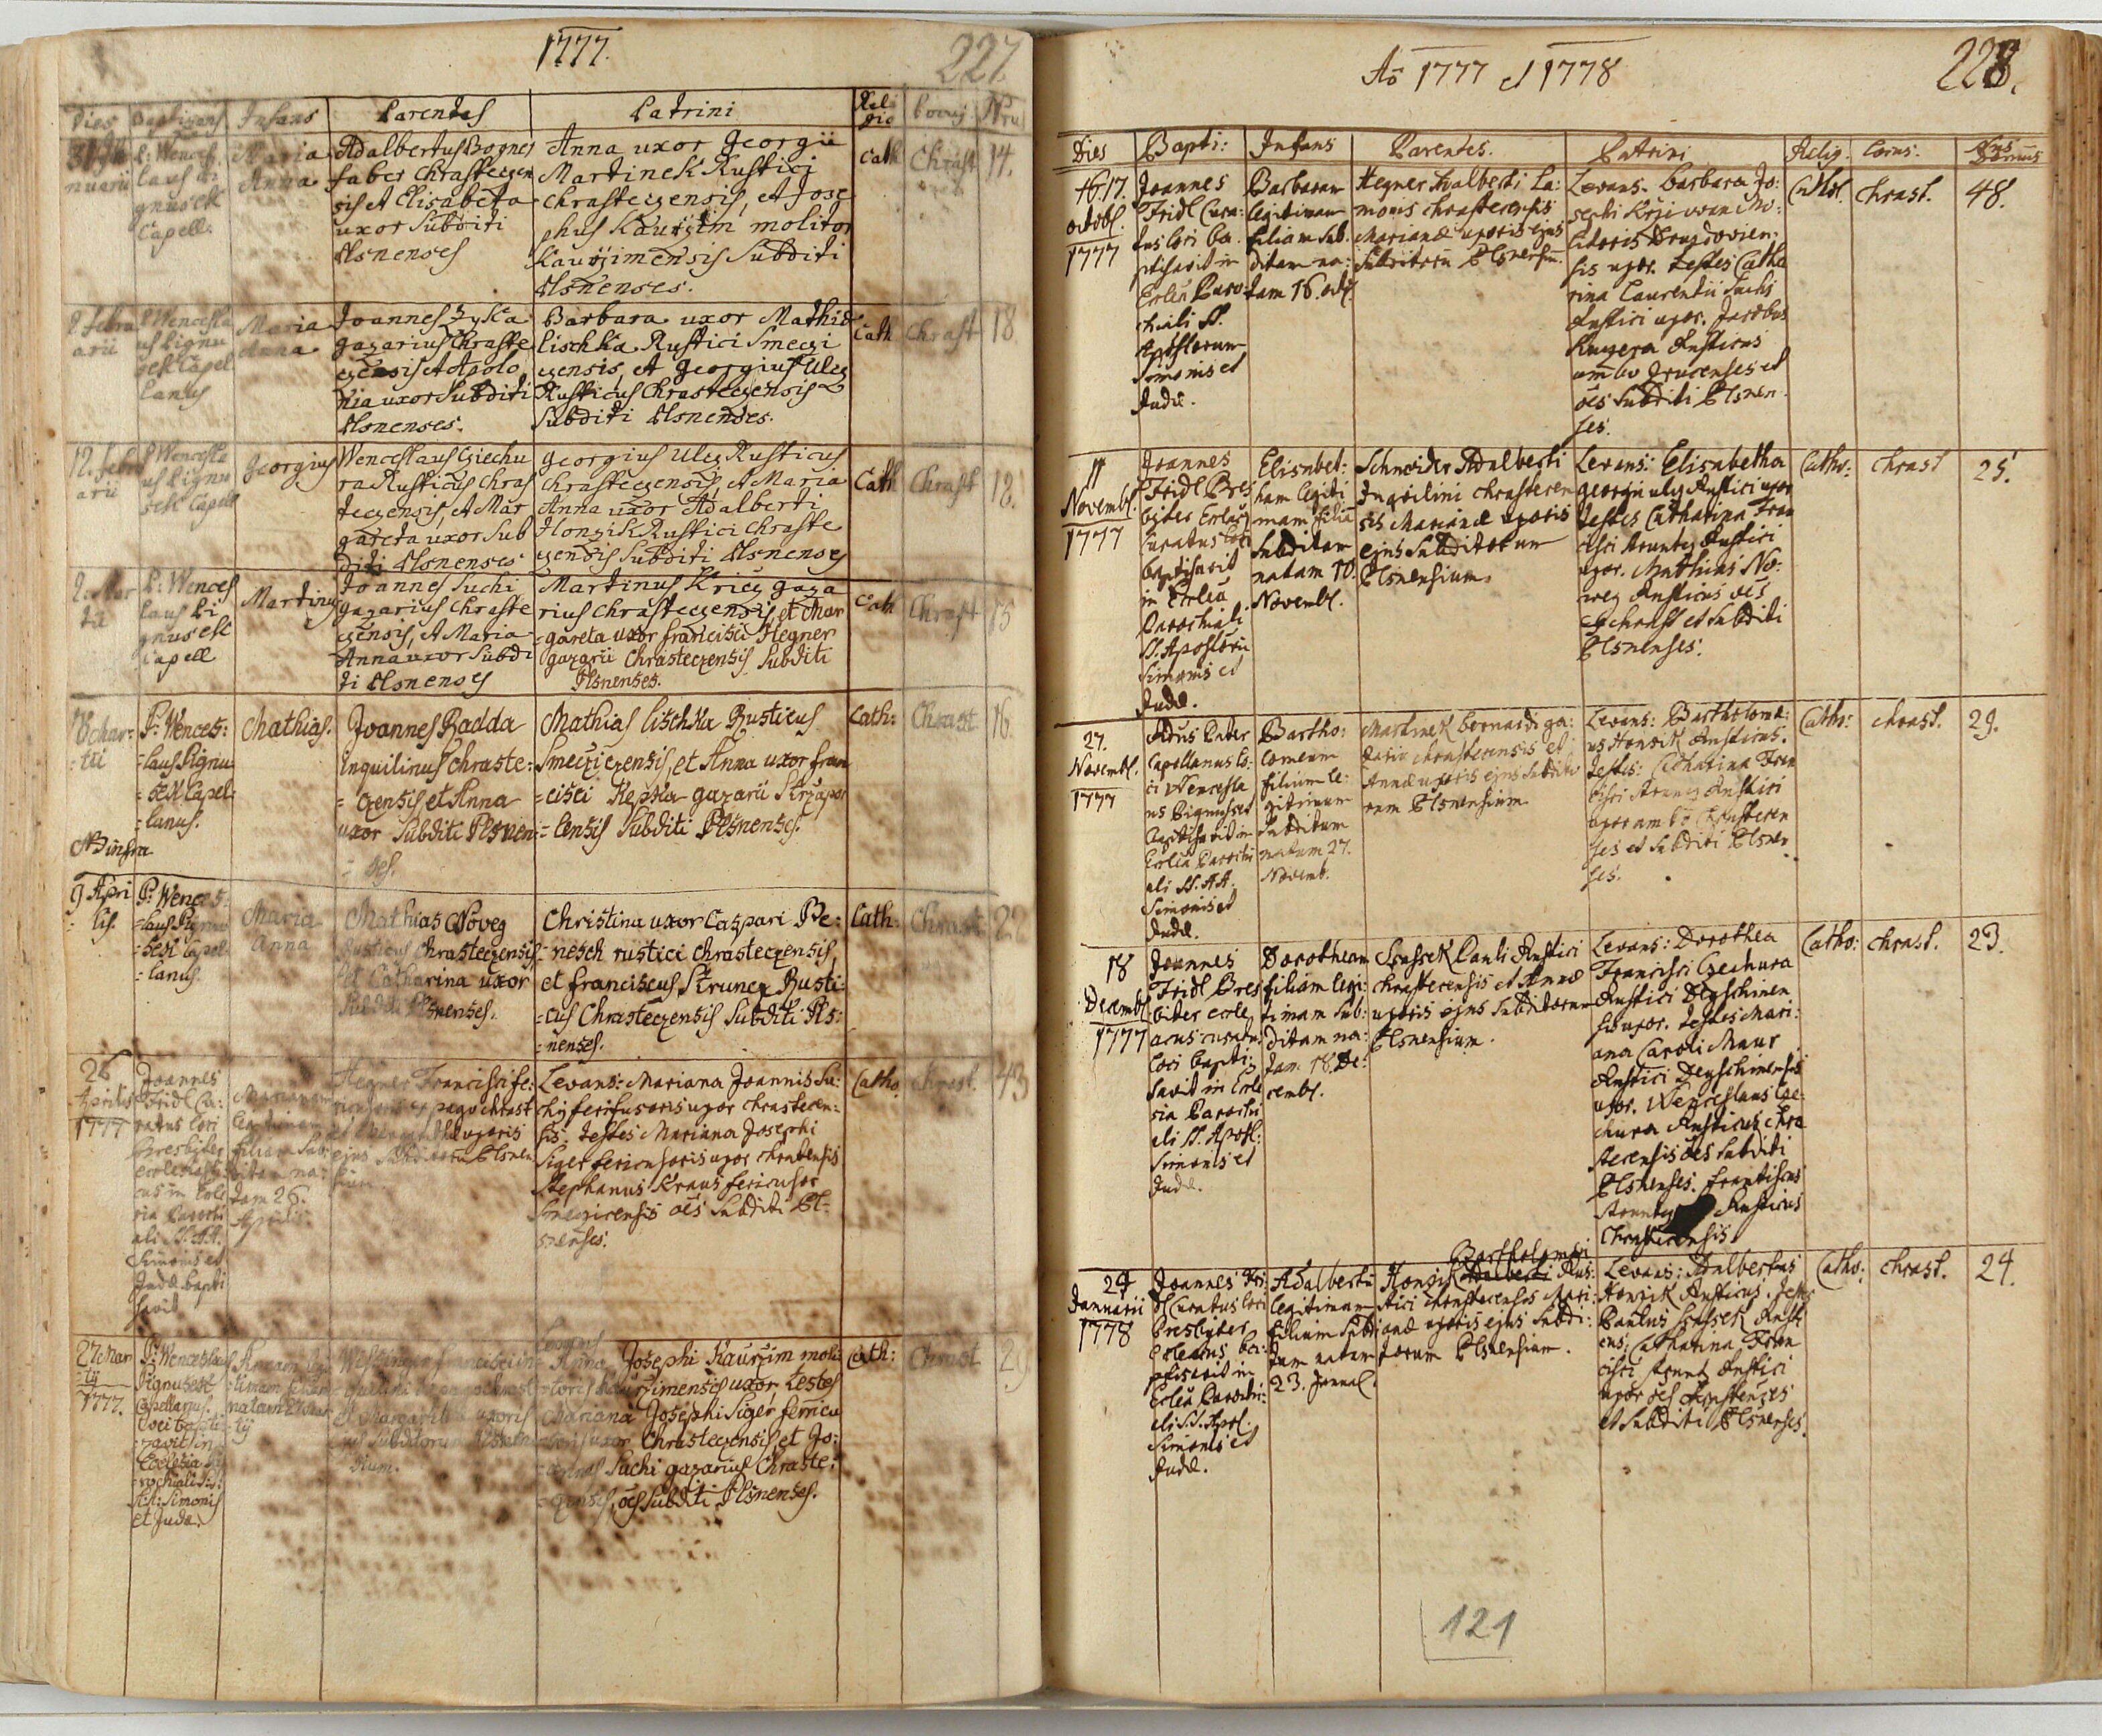 1777.
227
Dies Baptizans Infans Parentes Patrini Reli gio Locus Nru
nuarii
P: Wences
laus Pi
gnusek
Capell:
Maria
Anna
Adalbertus Bogner
faber Chrasteczen
sis et Elisabeta
uxor Subditi
Plsnenses
Anna uxor Georgii
Martinek Rustici
Chrasteczensis, et Jose
phus Kaurzim molitor
Kaurzimensis Subditi
Plsnenses.
Cath
Chrast
14.
2. Febru
arii
P Wencesla
us Pignu
sek Capel
lanus
Maria
Anna
Joannes Zyska
gazarius Chraste
czensis et Apolo
nia uxor Subditi
Plsnenses.
Barbara uxor Mathiæ
Lischka Rustici Smeczi
czensis, et Georgius Ulcz
Rusticus Chrasteczensis
Subditi Plsnenses.
Cath
Chrast
18
12. Febru
arii
P Wencesla
us Pignu
sek Capell
Georgius
Wenceslaus Cziechu
ra Rusticus Chras
teczensis, et Mar
gareta uxor Sub
diti Plsnenses
Georgius Ulcz Rusticus
Chrasteczensis, et Maria
Anna uxor Adalberti
Honzik Rustici Chraste
czensis Subditi Plsnenses
Cath
Chrast
18.
2. Mar
tii
P: Wences
laus Pi
gnusek
Capell
Martinus
Joannes Suchi
gazarius Chraste
czensis, et Maria
Anna uxor Subdi
ti Plsnenses
Martinus Kricz gaza
rius Chrasteczensis, et Mar
=gareta uxor Francisci Hegner
gazarii Chrasteczensis Subditi
Plsnenses.
Cath
Chrast
15
18 Mar:
=tii
P: Wences:
=laus Pignu
=sek Capel:
=lanus.
Mathias.
Joannes Radda
Inquilinus Chraste:
=czensis et Anna
uxor Subditi Plsnen:
=ses.
Mathias Lischka Rusticus
Smecziczensis, et Anna uxor Fran
=cisci Kepka gazarii Skrzapor
=lensis Subditi Plsnenses.
Cath:
Chrast
16.
NB infra
9 Apri
lis.
P: Wences:
=laus Pignu
=sek Capel
=lanus.
Maria
Anna
Mathias Noweg
Rusticus Chrasteczensis
et Catharina uxor
Subditi Plsnenses.
Christina uxor Caspari Be:
=nesch rustici Chrasteczensis,
et Franciscus Strunez Rusti:
=cus Chrasteczensis Subditi Pls:
=nenses.
Cath:
Chrast
22
26
Aprilis
1777
Joannes
Fridl Cu:
ratus loci
Presbyter
ecclesiasti
cus in Ecle
sia Parochi
ali SS. AA.
Simonis et
Judæ bapti
savit
Marianam
legitimam
filiam Sub:
ditam na:
tam 26.
Aprilis.
Hegner Francisci fe:
ex pago chrast
uxoris
ejus Subditorū Plsnen
sium
Levans: Mariana Joannis Su:
chy ferifusoris uxor chrastecen:
sis. testes Mariana Josephi
Siger fericusoris uxor chrastensis
Stephanus Kraus fericusor
Smecziczensis oēs Subditi Pl=
snenses.
Catho
Chrast.
43
27 Mar
tij
1777.
P: Wenceslaus
Pignusek
Capellanus
loci bapti:
=zavit in
Ecclesia Pa
=rochiali SS:
AA: Simonis
et Judæ.
Annam legi
=timam filiam
natam 27 Mar
=tij
Francisci in=
=quilini ex pago Chrast
et Margarithæ uxoris
ejus Subditorum Plsnen
sium.
Levans
Anna Josephi Kaurzim moli
=toris Kaurzimensis uxor, testes
Mariana Josephi Siger ferricu
=soris uxor Chrasteczensis, et Jo:
=annes Suchi gazarius Chraste:
=czensis, oēs Subditi Plsnenses.
Cath:
Chrast
29
Aō 1777 et 1778
228.
Dies Bapti: Infans Parentes. Patrini Relig. Locus. Nrus Domus
16.17.
octobl.
1777
Joannes
Fridl Cura:
tus loci ba
ptisavit in
Ecclia Paro:
chiali SS.
Apostlorum
Simonis et
Judæ.
Barbaram
legitimam
filiam sub:
ditam na:
tam 16. octl.
Hegner Adalberti La:
monis chrastecensis
Marianæ uxoris ejus
Subditorū Plsnensiū.
Levans. Barbara Jo:
sephi Krziwan Mo:
litoris Drugdovien:
sis uxor. testes Catha
rina Laurentii Suchi
Rustici uxor. Jacobus
Kuczera Rusticus
ambo Drucenses et
oēs Subditi Plsnen
ses.
Cathol.
Chrast.
48.
11
Novembl.
1777
Joannes
Fridl Pres
biter Eccliæ
Curatus loci
baptisavit
in Ecclia
Parochiali
SS. Apostlorū
Simonis et
Judæ.
Elisabet:
ham legiti
mam filiā
Subditam
natam 10.
Novembl.
Schneider Adalberti
Inquilini chrastecen
sis Marianæ uxoris
ejus Subditorum
Plsnensium.
Levans: Elisabetha
Georgii ulcz Rustici uxor
testes Catharina Fran
cisci Strunez Rustici
uxor. Mathias No:
weg Rusticus oēs
ex chrast et Subditi
Plsnenses.
Catho:
Chrast
25.
27.
Novembl.
1777
Rdus Pater
Capellanus lo:
ci Wencesla
us Pignusek
baptisavit in
Ecclia Parochi
ali SS. AA.
Simonis et
Judæ.
Bartho:
lomeum
filium le:
gitimum
Subditum
natum 27.
Novemb.
Martinek Bernardi ga:
zarii chrastecensis et
Annæ uxoris ejus Subdito
rum Plsnensium
Levans: Bartholomæ:
us Honsik Rusticus.
Testis: Catharina Fran
cisci Strunez Rustici
uxor ambo Chrastecen
ses et Subditi Plsnen
ses.
Catho:
Chrast.
29.
18
Decembl
1777
Joannes
Fridl Pres
biter eccle
acus curatus
loci bapti:
savit in Eccle
sia Parochi
ali SS. Apostl:
Simonis et
Judæ.
Dorotheam
filiam legi:
timam sub:
ditam na:
tam 18. De:
cembl.
Spassek Pauli Rustici
chrastecensis et Annæ
uxoris ejus Subditorum
Plsnensium.
Levans: Dorothea
Francisci Czechura
Rustici Deyschinen
sis uxor. testes Mari:
ana Caroli Maur
Rustici Deyschinensis
uxor. Wenceslaus Cze:
chura Rusticus chra
stecensis oēs Subditi
Plsnenses. Frantiscus
Strunez Rusticus
Chrastecensis
Catho:
Chrast.
23.
24
Januarii
1778
Joannes Fri:
dl Curatus loci
Presbyter
Ecleacus ba:
ptisavit in
Ecclia Parochi:
ali SS. Apol.
Simonis et
Judæ.
Adalbertū
legitimum
filium Subdi
tum natum
23. Januaℓ.
Bartholomæi
Honzik Adalberti Rus:
tici chrastecensis Mari:
anæ uxoris ejus Subdi:
torum Plsnensium.
Levans: Adalbertus
Honzik Rusticus. Testes
Paulus Spassek Rusti
cus, Catharina Fran
cisci Strunez Rustici
uxor oēs Chrastenses
et Subditi Plsnenses.
Catho:
Chrast.
24.
121